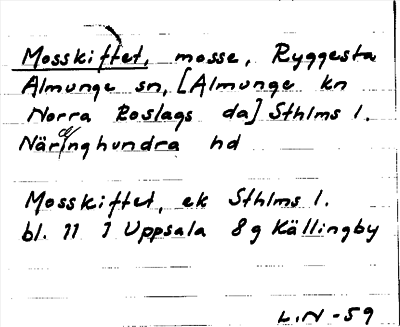 Mosskiftet, mosse, Ryggesta
Almunge sn, [Almunge kn
Norra Roslags da] Sthlms l.
Närdinghundra hd
Mosskiftet, ek Sthlms l.
bl. 11 I Uppsala 8g Källingby
L.N -59